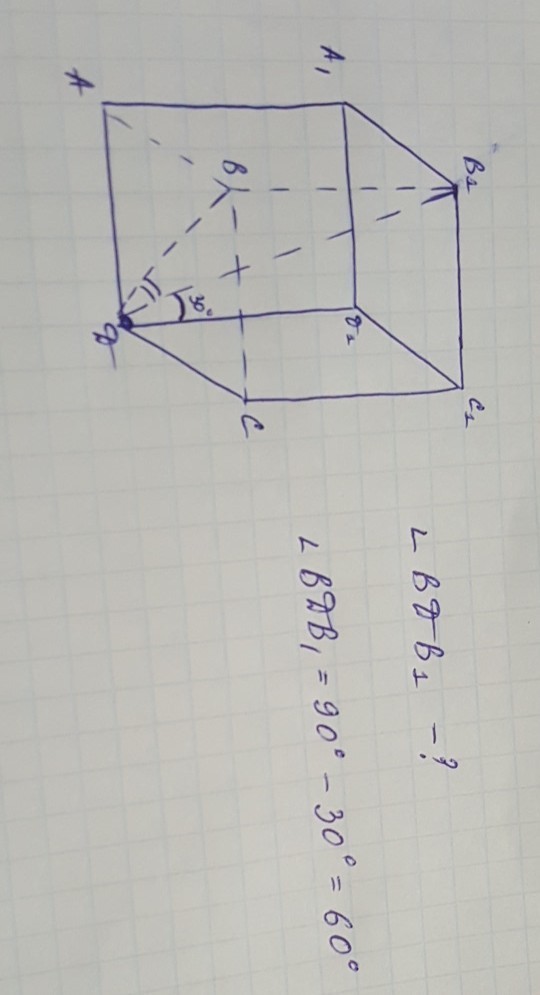 A
A₁
B
B₁
30°
D
D₁
C
C₁
∠ BDB₁ – ?
∠ BDB₁ = 90° – 30° = 60°